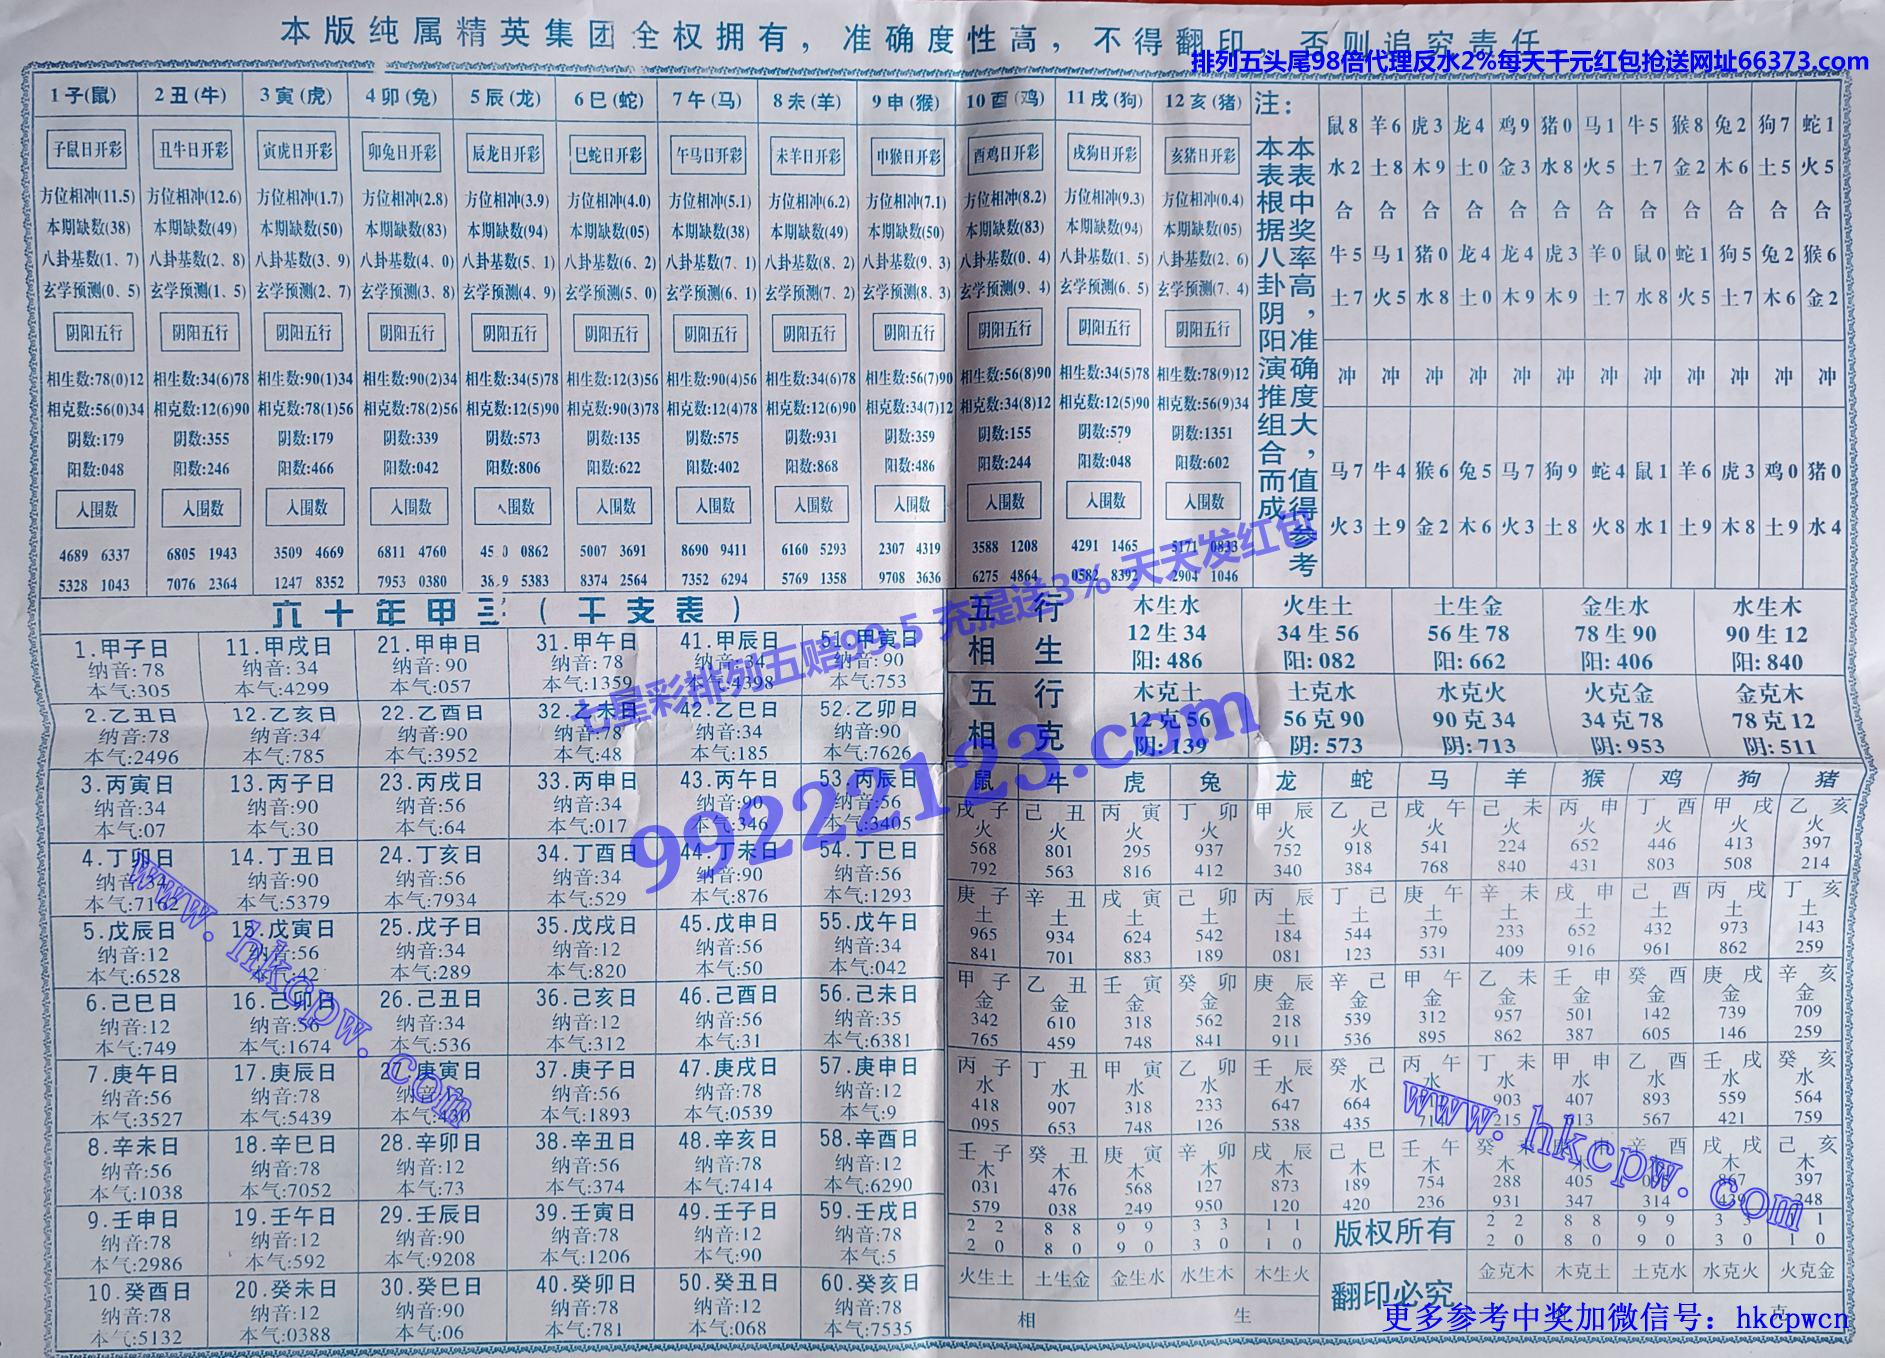 本版纯属精英集团全权拥有，准确度性高，不得翻印，否则追究责任
排列五头尾98倍代理反水2%每天千元红包抢送网址66373.com
1子(鼠) 2丑(牛) 3寅(虎) 4卯(兔) 5辰(龙) 6巳(蛇) 7午(马) 8未(羊) 9申(猴) 10酉(鸡) 11戌(狗) 12亥(猪)
子鼠日开彩 丑牛日开彩 寅虎日开彩 卯兔日开彩 辰龙日开彩 巳蛇日开彩 午马日开彩 未羊日开彩 申猴日开彩 酉鸡日开彩 戌狗日开彩 亥猪日开彩
方位相冲(11.5) 方位相冲(12.6) 方位相冲(1.7) 方位相冲(2.8) 方位相冲(3.9) 方位相冲(4.0) 方位相冲(5.1) 方位相冲(6.2) 方位相冲(7.1) 方位相冲(8.2) 方位相冲(9.3) 方位相冲(0.4)
本期缺数(38) 本期缺数(49) 本期缺数(50) 本期缺数(83) 本期缺数(94) 本期缺数(05) 本期缺数(38) 本期缺数(49) 本期缺数(50) 本期缺数(83) 本期缺数(94) 本期缺数(05)
八卦基数(1、7) 八卦基数(2、8) 八卦基数(3、9) 八卦基数(4、0) 八卦基数(5、1) 八卦基数(6、2) 八卦基数(7、1) 八卦基数(8、2) 八卦基数(9、3) 八卦基数(0、4) 八卦基数(1、5) 八卦基数(2、6)
玄学预测(0、5) 玄学预测(1、5) 玄学预测(2、7) 玄学预测(3、8) 玄学预测(4、9) 玄学预测(5、0) 玄学预测(6、1) 玄学预测(7、2) 玄学预测(8、3) 玄学预测(9、4) 玄学预测(6、5) 玄学预测(7、4)
阴阳五行 阴阳五行 阴阳五行 阴阳五行 阴阳五行 阴阳五行 阴阳五行 阴阳五行 阴阳五行 阴阳五行 阴阳五行 阴阳五行
相生数:78(0)12 相生数:34(6)78 相生数:90(1)34 相生数:90(2)34 相生数:34(5)78 相生数:12(3)56 相生数:90(4)56 相生数:34(6)78 相生数:56(7)90 相生数:56(8)90 相生数:34(5)78 相生数:78(9)12
相克数:56(0)34 相克数:12(6)90 相克数:78(1)56 相克数:78(2)56 相克数:12(5)90 相克数:90(3)78 相克数:12(4)78 相克数:12(6)90 相克数:34(7)12 相克数:34(8)12 相克数:12(5)90 相克数:56(9)34
阴数:179 阴数:355 阴数:179 阴数:339 阴数:573 阴数:135 阴数:575 阴数:931 阴数:359 阴数:155 阴数:579 阴数:1351
阳数:048 阳数:246 阳数:466 阳数:042 阳数:806 阳数:622 阳数:402 阳数:868 阳数:486 阳数:244 阳数:048 阳数:602
入围数 入围数 入围数 入围数 入围数 入围数 入围数 入围数 入围数 入围数 入围数 入围数
4689 6337 6805 1943 3509 4669 6811 4760 0862 5007 3691 8690 9411 6160 5293 2307 4319 3588 1208 4291 1465 5171 0833
5328 1043 7076 2364 1247 8352 7953 0380 5383 8374 2564 7352 6294 5769 1358 9708 3636 6275 4864 0582 8392 2904 1046
注：
本表中奖率高，准确度大，值得参考
本表根据八卦阴阳演推组合而成
鼠8 羊6 虎3 龙4 鸡9 猪0 马1 牛5 猴8 兔2 狗7 蛇1
水2 土8 木9 土0 金3 水8 火5 土7 金2 木6 土5 火5
合 合 合 合 合 合 合 合 合 合 合 合
牛5 马1 猪0 龙4 龙4 虎3 羊0 鼠0 蛇1 狗5 兔2 猴6
土7 火5 水8 土0 木9 木9 土7 水8 火5 土7 木6 金2
冲 冲 冲 冲 冲 冲 冲 冲 冲 冲 冲 冲
马7 牛4 猴6 兔5 马7 狗9 蛇4 鼠1 羊6 虎3 鸡0 猪0
火3 土9 金2 木6 火3 土8 火8 水1 土9 木8 土9 水4
六十年甲子（干支表）
1.甲子日 11.甲戌日 21.甲申日 31.甲午日 41.甲辰日 51.甲寅日
纳音:78 纳音:34 纳音:90 纳音:78 纳音:34 纳音:90
本气:305 本气:4299 本气:057 本气:1359 本气:4398 本气:753
2.乙丑日 12.乙亥日 22.乙酉日 32.乙未日 42.乙巳日 52.乙卯日
纳音:78 纳音:34 纳音:90 纳音:78 纳音:34 纳音:90
本气:2496 本气:785 本气:3952 本气:48 本气:185 本气:7626
3.丙寅日 13.丙子日 23.丙戌日 33.丙申日 43.丙午日 53.丙辰日
纳音:34 纳音:90 纳音:56 纳音:34 纳音:90 纳音:56
本气:07 本气:30 本气:64 本气:017 本气:346 本气:3405
4.丁卯日 14.丁丑日 24.丁亥日 34.丁酉日 44.丁未日 54.丁巳日
纳音:34 纳音:90 纳音:56 纳音:34 纳音:90 纳音:56
本气:5379 本气:7934 本气:529 本气:876 本气:1293
5.戊辰日 15.戊寅日 25.戊子日 35.戊戌日 45.戊申日 55.戊午日
纳音:12 纳音:56 纳音:34 纳音:12 纳音:56 纳音:34
本气:6528 本气:42 本气:289 本气:820 本气:50 本气:042
6.己巳日 16.己卯日 26.己丑日 36.己亥日 46.己酉日 56.己未日
纳音:12 纳音:56 纳音:34 纳音:12 纳音:56 纳音:35
本气:749 本气:1674 本气:536 本气:312 本气:31 本气:6381
7.庚午日 17.庚辰日 27.庚寅日 37.庚子日 47.庚戌日 57.庚申日
纳音:56 纳音:78 纳音: 纳音:56 纳音:78 纳音:12
本气:3527 本气:5439 本气:430 本气:1893 本气:0539 本气:9
8.辛未日 18.辛巳日 28.辛卯日 38.辛丑日 48.辛亥日 58.辛酉日
纳音:56 纳音:78 纳音:12 纳音:56 纳音:78 纳音:12
本气:1038 本气:7052 本气:73 本气:374 本气:7414 本气:6290
9.壬申日 19.壬午日 29.壬辰日 39.壬寅日 49.壬子日 59.壬戌日
纳音:78 纳音:12 纳音:90 纳音:78 纳音:12 纳音:78
本气:2986 本气:592 本气:9208 本气:1206 本气:90 本气:5
10.癸酉日 20.癸未日 30.癸巳日 40.癸卯日 50.癸丑日 60.癸亥日
纳音:78 纳音:12 纳音:90 纳音:78 纳音:12 纳音:78
本气:5132 本气:0388 本气:06 本气:781 本气:068 本气:7535
五行相生
木生水 火生土 土生金 金生水 水生木
12生34 34生56 56生78 78生90 90生12
阳:486 阳:082 阳:662 阳:406 阳:840
五行相克
木克土 土克水 水克火 火克金 金克木
12克56 56克90 90克34 34克78 78克12
阴:139 阴:573 阴:713 阴:953 阴:511
鼠 牛 虎 兔 龙 蛇 马 羊 猴 鸡 狗 猪
戌子 己丑 丙寅 丁卯 甲辰 乙己 戌午 己未 丙申 丁酉 甲戌 乙亥
火 火 火 火 火 火 火 火 火 火 火 火
568 801 295 937 752 918 541 224 652 446 413 397
792 563 816 412 340 384 768 840 431 803 508 214
庚子 辛丑 戌寅 己卯 丙辰 丁己 庚午 辛未 戌申 己酉 丙戌 丁亥
土 土 土 土 土 土 土 土 土 土 土 土
965 934 624 542 184 544 379 233 652 432 973 143
841 701 883 189 081 123 531 409 916 961 862 259
甲子 乙丑 壬寅 癸卯 庚辰 辛己 甲午 乙未 壬申 癸酉 庚戌 辛亥
金 金 金 金 金 金 金 金 金 金 金 金
342 610 318 562 218 539 312 957 501 142 739 709
765 459 748 841 911 536 895 862 387 605 146 259
丙子 丁丑 甲寅 乙卯 壬辰 癸己 丙午 丁未 甲申 乙酉 壬戌 癸亥
水 水 水 水 水 水 水 水 水 水 水 水
418 907 318 233 647 664 903 407 893 559 564
095 653 748 126 538 435 714 215 913 567 421 759
壬子 癸丑 庚寅 辛卯 戌辰 己巳 壬午 癸未 庚申 辛酉 戌戌 己亥
木 木 木 木 木 木 木 木 木 木 木
031 476 568 127 873 189 754 288 405 867 397
579 038 249 950 120 420 236 931 347 314 439 248
22 88 99 33 11 版权所有 22 88 99 33 1
20 80 90 30 10 20 80 90 30 10
火生土 土生金 金生水 水生木 木生火 翻印必究 金克木 木克土 土克水 水克火 火克金
相生 克
七星彩排列五赔99.5 充提送3% 天天发红包
99222123.com
www.hkcpw.com
www.hkcpw.com
更多参考中奖加微信号：hkcpwcn